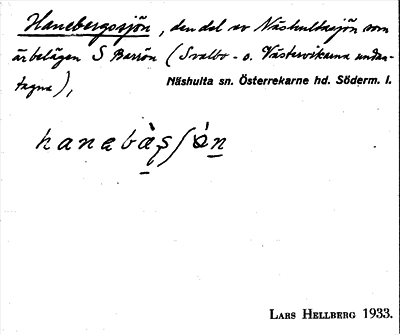 Hanebergssjön, den del av Näshultasjön som
är belägen S Barrön (Svalbo- o. Västervikarna undan-
tagna),
Näshulta sn. Österrekarne hd. Söderm. l.
hanebàsʃön
LARS HELLBERG 1933.